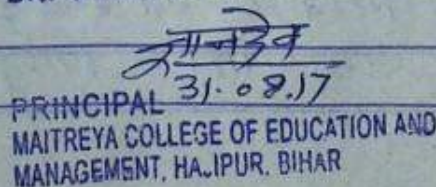 ज्ञानदेव
31.08.17
PRINCIPAL
MAITREYA COLLEGE OF EDUCATION AND
MANAGEMENT, HAJIPUR, BIHAR